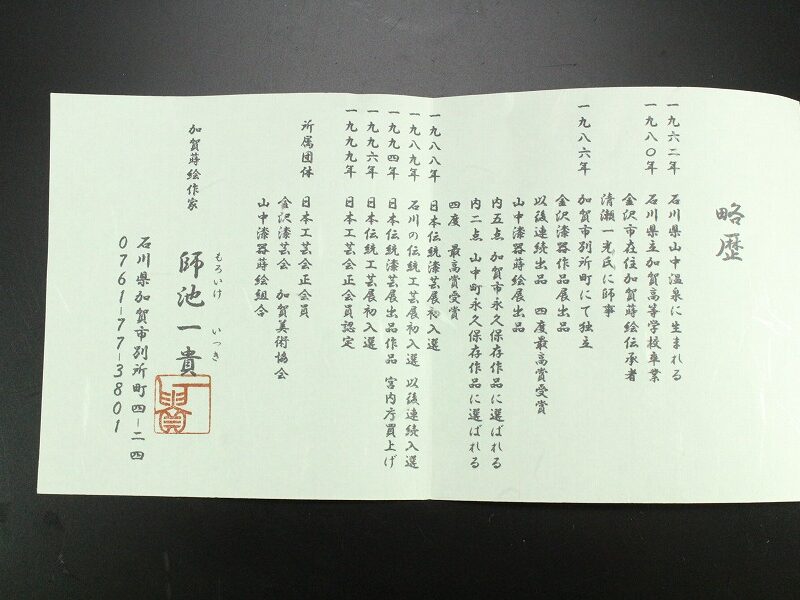 略歴
一九六二年 石川県山中温泉に生まれる
一九八〇年 石川県立加賀高等学校卒業
金沢市在住加賀蒔絵伝承者
清瀬一光氏に師事
一九八六年 加賀市別所町にて独立
金沢漆器作品展出品
以後連続出品 四度最高賞受賞
山中漆器蒔絵展出品
内五点 加賀市永久保存作品に選ばれる
内二点 山中町永久保存作品に選ばれる
四度 最高賞受賞
一九八八年 日本伝統漆芸展初入選
一九八九年 石川の伝統工芸展初入選 以後連続入選
一九九四年 日本伝統漆芸展出品作品 宮内庁買上げ
一九九六年 日本伝統工芸展初入選
一九九九年 日本工芸会正会員認定
所属団体 日本工芸会正会員
金沢漆芸会 加賀美術協会
山中漆器蒔絵組合
加賀蒔絵作家
師池一貴
もろいけ いっき
石川県加賀市別所町四-二四
0761-77-3801